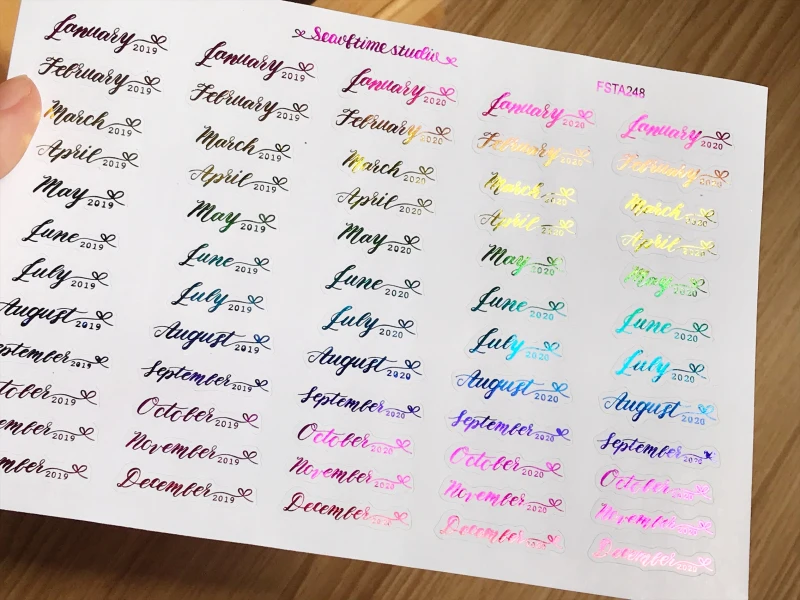 Seaoftime studio
FSTA248
January 2019
February 2019
March 2019
April 2019
May 2019
June 2019
July 2019
August 2019
eptember 2019
tober 2019
ember 2019
mber 2019
January 2019
February 2019
March 2019
April 2019
May 2019
June 2019
July 2019
August 2019
September 2019
October 2019
November 2019
December 2019
January 2020
February 2020
March 2020
April 2020
May 2020
June 2020
July 2020
August 2020
September 2020
October 2020
November 2020
December 2020
January 2020
February 2020
March 2020
April 2020
May 2020
June 2020
July 2020
August 2020
September 2020
October 2020
November 2020
December 2020
January 2020
February 2020
March 2020
April 2020
May 2020
June 2020
July 2020
August 2020
September 2020
October 2020
November 2020
December 2020